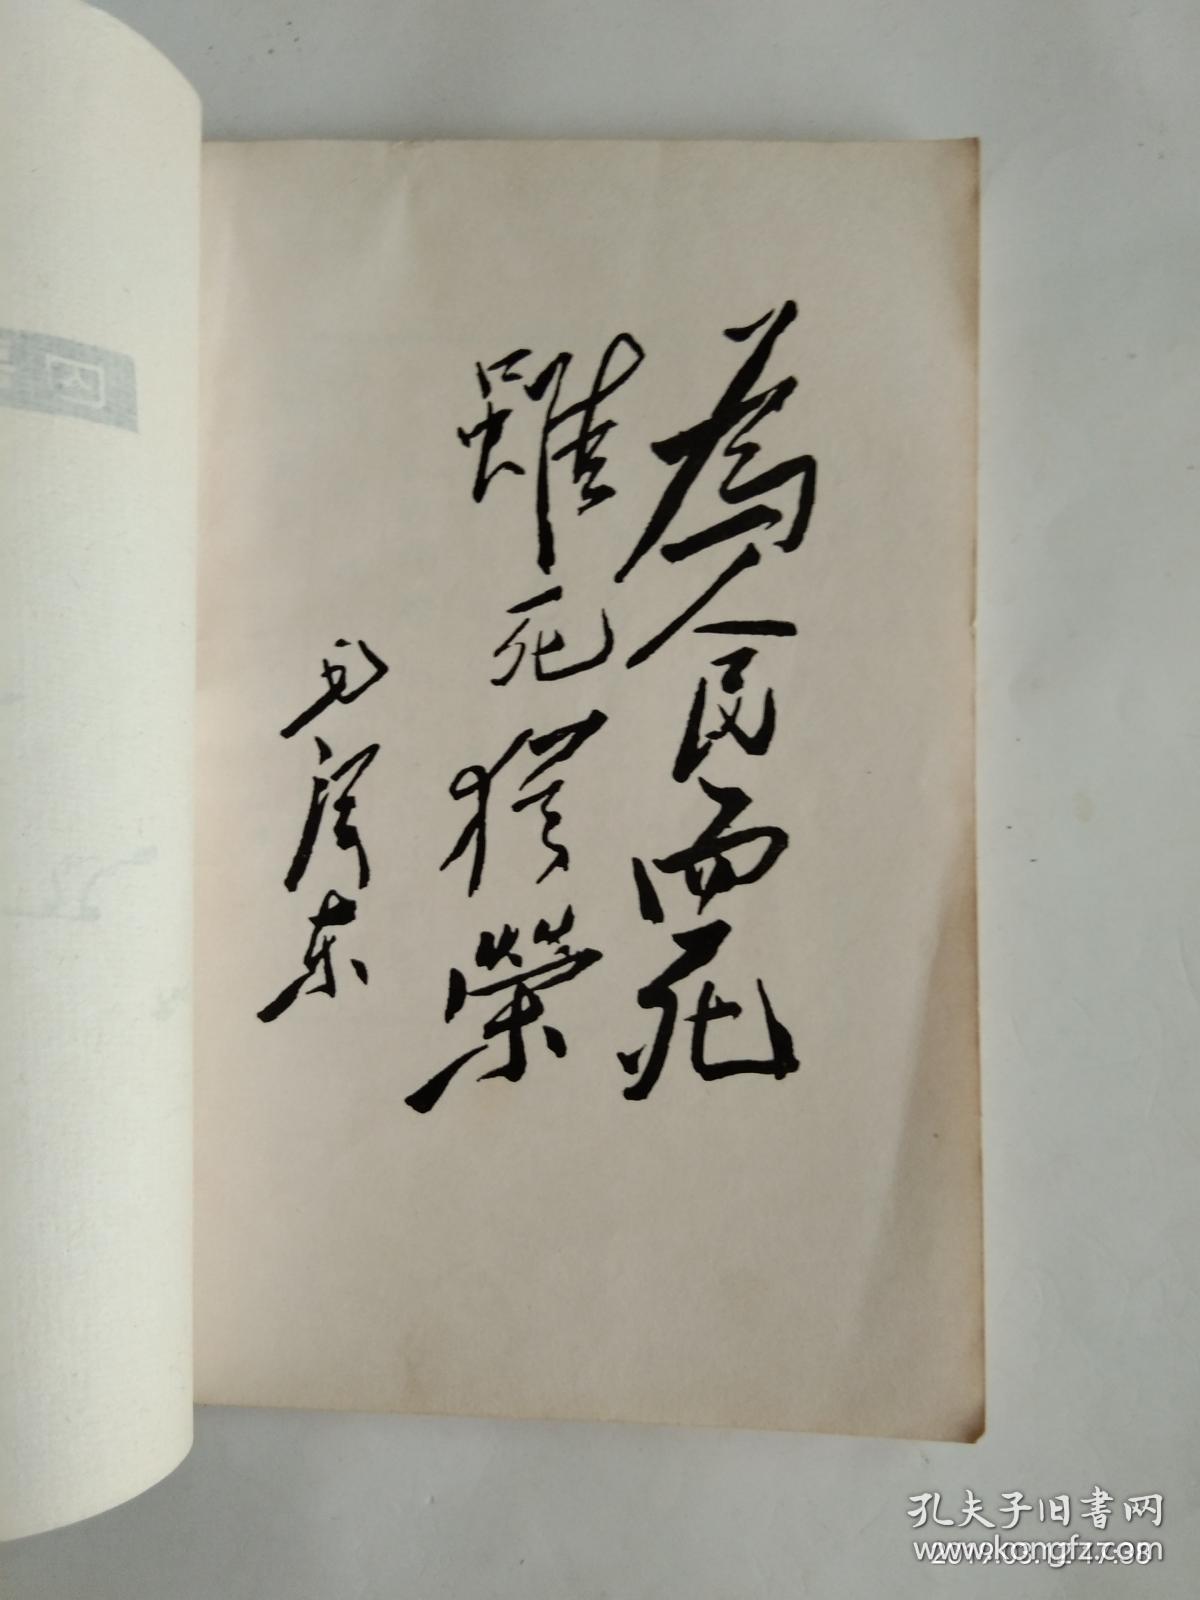 為人民而死
雖死猶榮
毛澤东
孔夫子旧書网
www.kongfz.com